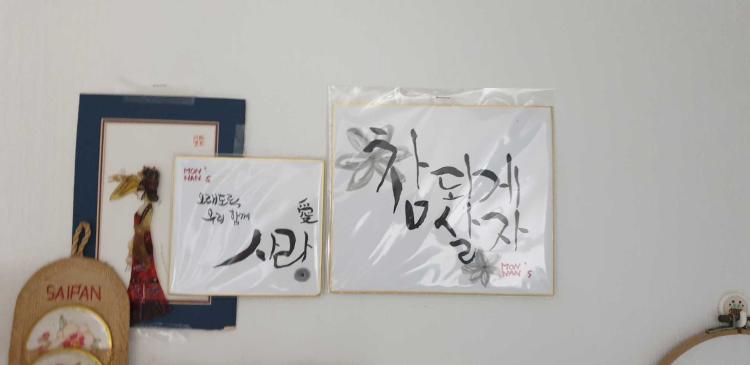 MON'
NAN S
오래도록
우리 함께
愛
사랑
참 되게
살자
MON'
NAN S
SAIPAN